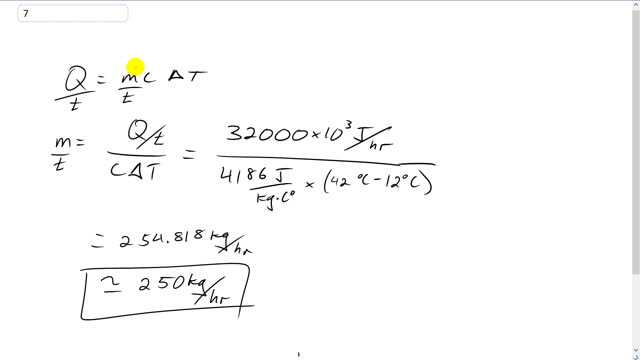 7
Q/t = m/t C ΔT
m/t = (Q/t)/(CΔT) = (32000×10³ J/hr)/(4186 J/(kg·C°) × (42°C-12°C))
= 254.818 kg/hr
≃ 250 kg/hr